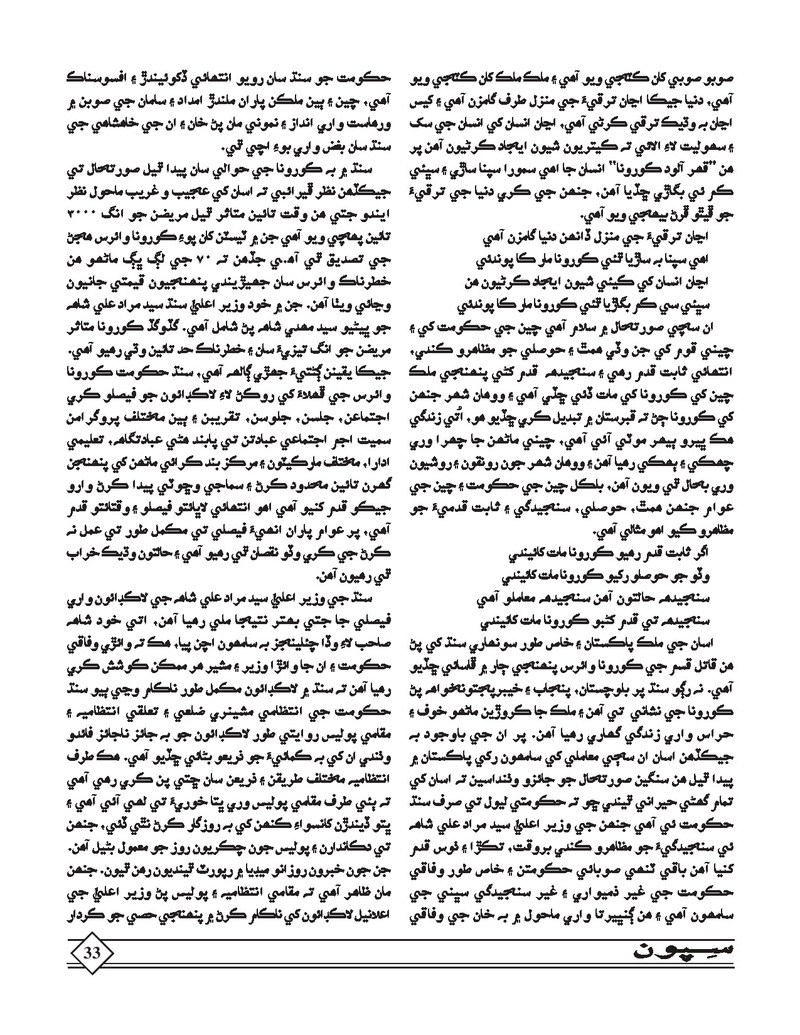 صوبو صوبي کان ڪٽجي ويو آهي ۽ ملڪ ملڪ کان ڪٽجي ويو
آهي، دنيا جيڪا اڃان ترقيءَ جي منزل طرف گامزن آهي ۽ کيس
اڃان به وڌيڪ ترقي ڪرڻي آهي، اڃان انسان کي انسان جي سک
۽ سهوليت لاءِ الائي ته ڪيتريون شيون ايجاد ڪرڻيون آهن پر
هن ”قهر آلود ڪورونا“ انسان جا اهي سمورا سپنا ساڙي ۽ سڀئي
ڪم ئي بگاڙي ڇڏيا آهن، جنهن جي ڪري دنيا جي ترقيءَ
جو ڦيٿو ڦرڻ بيهجي ويو آهي.
اڃان ترقيءَ جي منزل ڏانهن دنيا گامزن آهي
اهي سپنا به ساڙيا ٿئي ڪورونا مار ڪا پوندئي
اڃان انسان کي ڪيئي شيون ايجاد ڪرڻيون هن
سڀئي سي ڪم بگاڙيا ٿئي ڪورونا مار ڪا پوندئي
ان سڄي صورتحال ۾ سلام آهي چين جي حڪومت کي ۽
چيني قوم کي جن وڏي همٿ ۽ حوصلي جو مظاهرو ڪندي،
انتهائي ثابت قدم رهي ۽ سنجيدهه قدم کڻي پنهنجي ملڪ
چين کي ڪورونا کي مات ڏئي ڇڏي آهي ۽ ووهان شهر جنهن
کي ڪورونا ڄڻ ته قبرستان ۾ تبديل ڪري ڇڏيو هو، اُتي زندگي
هڪ ڀيرو ٻيهر موٽي آئي آهي، چيني ماڻهن جا چهرا وري
چهڪي ۽ ٻهڪي رهيا آهن ۽ ووهان شهر جون رونقون ۽ روشيون
وري بحال ٿي ويون آهن، بلڪل چين جي حڪومت ۽ چين جي
عوام جنهن همٿ، حوصلي، سنجيدگي ۽ ثابت قدميءَ جو
مظاهرو ڪيو اهو مثالي آهي.
اگر ثابت قدم رهيو ڪورونا مات کائيندي
وڏو جو حوصلو رکيو ڪورونا مات کائيندي
سنجيدهه حالتون آهن سنجيدهه معاملو آهي
سنجيدهه ٿي قدم کڻبو ڪورونا مات کائيندي
اسان جي ملڪ پاڪستان ۽ خاص طور سونهاري سنڌ کي پڻ
هن قاتل قسم جي ڪورونا وائرس پنهنجي ڄار ۾ ڦاسائي ڇڏيو
آهي. نه رڳو سنڌ پر بلوچستان، پنجاب ۽ خيبرپختونخواهه پڻ
ڪورونا جي نشاني تي آهن ۽ ملڪ جا ڪروڙين ماڻهو خوف ۽
حراس واري زندگي گهاري رهيا آهن. پر ان جي باوجود به
جيڪڏهن اسان ان سڄي معاملي کي سامهون رکي پاڪستان ۾
پيدا ٿيل هن سنگين صورتحال جو جائزو وٺنداسين ته اسان کي
تمام گهڻي حيراني ٿيندي ڇو ته حڪومتي ليول تي صرف سنڌ
حڪومت ئي آهي جنهن جي وزير اعليٰ سيد مراد علي شاهه
ئي سنجيدگيءَ جو مظاهرو ڪندي بروقت، تڪڙا ۽ ٺوس قدم
کنيا آهن باقي ٽنهي صوبائي حڪومتن ۽ خاص طور وفاقي
حڪومت جي غير ذميواري ۽ غير سنجيدگي سڀني جي
سامهون آهي ۽ هن ڳنڀيرتا واري ماحول ۾ به خان جي وفاقي
حڪومت جو سنڌ سان رويو انتهائي ڏکوئيندڙ ۽ افسوسناڪ
آهي، چين ۽ ٻين ملڪن پاران ملندڙ امداد ۽ سامان جي صوبن ۾
ورهاست واري انداز ۽ نموني مان پڻ خان ۽ ان جي خاهشاهي جي
سنڌ سان بغض واري بوءِ اچي ٿي.
سنڌ ۾ به ڪورونا جي حوالي سان پيدا ٿيل صورتحال تي
جيڪڏهن نظر ڦيرائبي ته اسان کي عجيب و غريب ماحول نظر
ايندو جتي هن وقت تائين متاثر ٿيل مريضن جو انگ ۳۰۰۰
تائين پهچي ويو آهي جن ۾ ٽيسٽن کان پوءِ ڪورونا وائرس هجڻ
جي تصديق ٿي آهي جڏهن ته ۷۰ جي لڳ ڀڳ ماڻهو هن
خطرناڪ وائرس سان جهيڙيندي پنهنجيون قيمتي جانيون
وڃائي ويٺا آهن. جن ۾ خود وزير اعليٰ سنڌ سيد مراد علي شاهه
جو ڀيڻيو سيد مهدي شاهه پڻ شامل آهي. گڏوگڏ ڪورونا متاثر
مريضن جو انگ تيزيءَ سان ۽ خطرناڪ حد تائين وڌي رهيو آهي.
جيڪا يقينن ڳڻتيءَ جهڙي ڳالهه آهي، سنڌ حڪومت ڪورونا
وائرس جي ڦهلاءَ کي روڪڻ لاءِ لاڪڊائون جو فيصلو ڪري
اجتماعن، جلسن، جلوسن، تقريبن ۽ ٻين مختلف پروگرامن
سميت اجم اجتماعي عبادتن تي پابند هڻي عبادتگاهه، تعليمي
ادارا، مختلف مارڪيٽون ۽ مرڪز بند ڪرائي ماڻهن کي پنهنجن
گهرن تائين محدود ڪرڻ ۽ سماجي وڇوٽي پيدا ڪرڻ وارو
جيڪو قدم کنيو آهي اهو انتهائي لاڀائتو فيصلو ۽ وقتائتو قدم
آهي، پر عوام پاران انهيءَ فيصلي تي مڪمل طور تي عمل نه
ڪرڻ جي ڪري وڏو نقصان ٿي رهيو آهي ۽ حالتون وڌيڪ خراب
ٿي رهيون آهن.
سنڌ جي وزير اعليٰ سيد مراد علي شاهه جي لاڪڊائون واري
فيصلي جا جتي بهتر نتيجا ملي رهيا آهن، اتي خود شاهه
صاحب لاءِ وڏا چئلينجز به سامهون اچن پيا، هڪ ته وائڙي وفاقي
حڪومت ۽ ان جا وائڙا وزير ۽ مشير هر ممڪن ڪوشش ڪري
رهيا آهن ته سنڌ ۾ لاڪڊائون مڪمل طور ناڪام وڃي ٻيو سنڌ
حڪومت جي انتظامي مشينري ضلعي ۽ تعلقي انتظاميه ۽
مقامي پوليس روايتي طور لاڪڊائون جو به جائز ناجائز فائدو
وٺندي ان کي به ڪمائيءَ جو ذريعو بڻائي ڇڏيو آهي. هڪ طرف
انتظاميه مختلف طريقن ۽ ذريعن سان ڇٽي پن ڪري رهي آهي
ته ٻئي طرف مقامي پوليس وري ڀتا خوريءَ تي لهي آئي آهي ۽
ڀتو ڏيندڙن کانسواءِ ڪنهن کي به روزگار ڪرڻ نٿي ڏئي، جنهن
تي دڪاندارن ۽ پوليس جون چڪريون روز جو معمول بڻيل آهن.
جن جون خبرون روزانو ميڊيا ۾ رپورٽ ٿينديون رهن ٿيون. جنهن
مان ظاهر آهي ته مقامي انتظاميه ۽ پوليس پڻ وزير اعليٰ جي
اعلانيل لاڪڊائون کي ناڪام ڪرڻ ۾ پنهنجي حصي جو ڪردار
سِپون
33